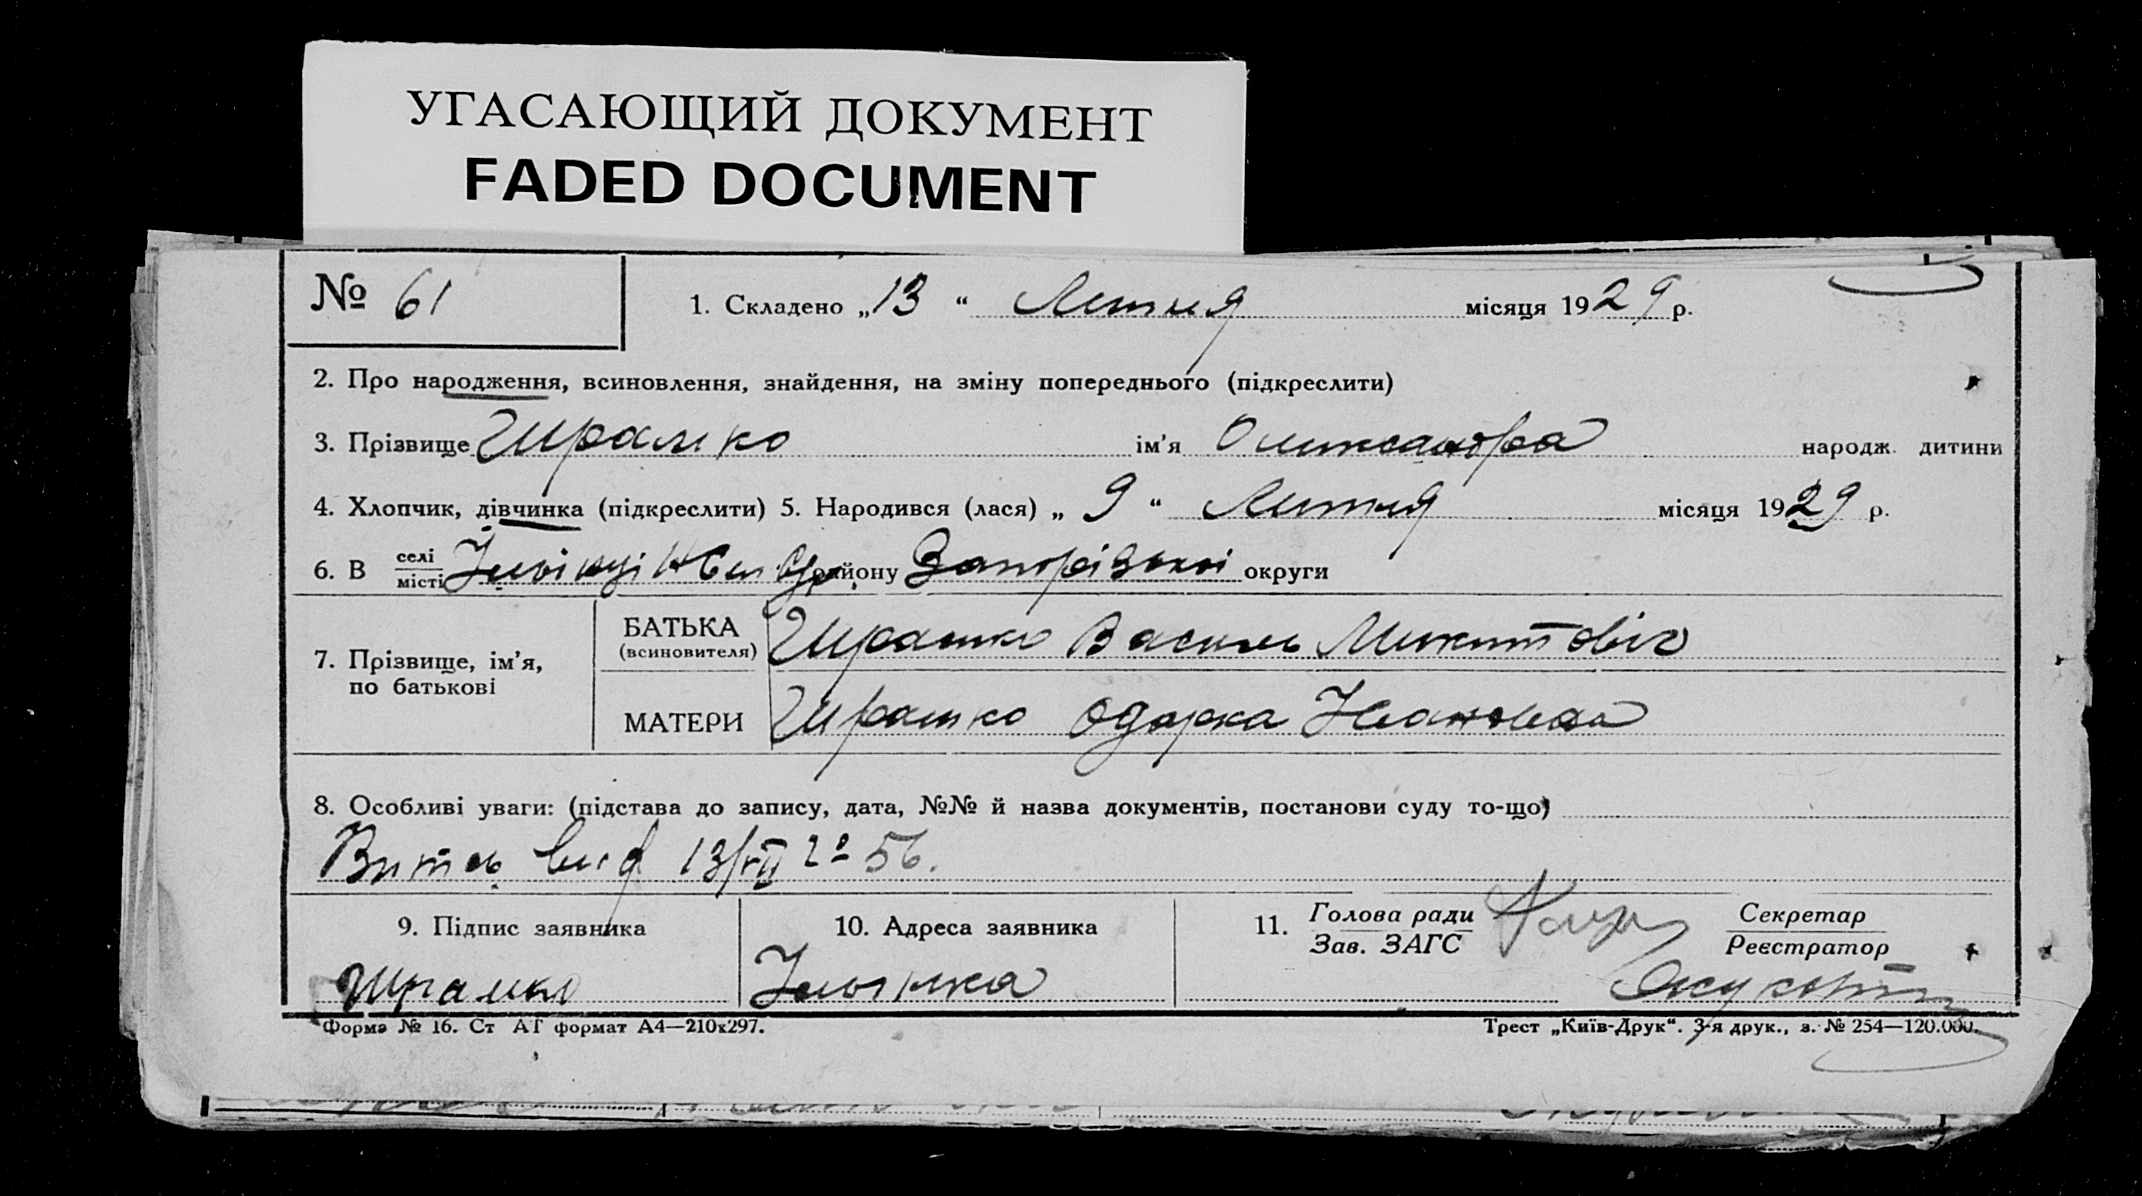 УГАСАЮЩИЙ ДОКУМЕНТ
FADED DOCUMENT
№ 61
1. Складено „13“ Липня місяця 1929 р.
2. Про народження, всиновлення, знайдення, на зміну попереднього (підкреслити)
3. Прізвище Шрамко ім'я Олександра народж. дитини
4. Хлопчик, дівчинка (підкреслити) 5. Народився (лася) „9“ Липня місяця 1929 р.
6. В селі місті району Запорізької округи
7. Прізвище, ім'я, по батькові
БАТЬКА (всиновителя) Шрамко Василь Микитович
МАТЕРИ Шрамко Одарка Івановна
8. Особливі уваги: (підстава до запису, дата, №№ й назва документів, постанови суду то-що)
13/VII 56.
9. Підпис заявника
10. Адреса заявника
11. Голова ради Зав. ЗАГС
Секретар Реєстратор
Шрамко
Форма № 16. Ст АТ формат А4—210х297.
Трест „Київ-Друк“. 3-я друк., з. № 254—120.000.